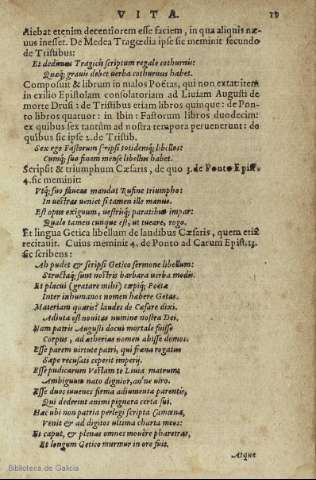 VITA.
Aiebat etenim decentiorem esse faciem, in qua aliquis næ-
uus inesset. De Medea Tragœdia ipse sic meminit secundo
de Tristibus:
Et dedimus Tragicis scriptum regale cothurnis:
Quæq; grauis debet verba cothurnus habet.
Composuit & librum in malos Poëtas, qui non extat: item
in exilio Epistolam consolatoriam ad Liuiam Augusti de
morte Drusi: de Tristibus etiam libros quinque: de Pon-
to libros quatuor: in Ibin: Fastorum libros duodecim:
ex quibus sex tantùm ad nostra tempora peruenerunt: de
quibus sic ipse 2. de Tristib.
Sex ego Fastorum scripsi totidemq; libellos:
Cumq; suo finem mense libellus habet.
Scripsit & triumphum Cæsaris, de quo 3. de Ponto Epist.
4. sic meminit:
Vtq; suo faueas mandat Rufine triumpho:
In vestras venit si tamen ille manus.
Est opus exiguum, vestrisq; paratibus impar:
Quale tamen cunque est, vt tueare, rogo.
Et lingua Getica libellum de laudibus Cæsaris, quem etiã
recitauit. Cuius meminit 4. de Ponto ad Carum Epist. 13.
sic scribens:
Ah pudet & scripsi Getico sermone libellum:
Structaq; sunt nostris barbara verba modis.
Et placui (gratare mihi) cœpiq; Poëta
Inter inhumanos nomen habere Getas.
Materiam quæris? laudes de Cæsare dixi.
Adiuta est nouitas numine nostra Dei.
Nam patris Augusti docui mortale fuisse
Corpus, ad ætherias nomen abiisse domos.
Esse parem virtute patri, qui fræna rogatus
Sæpe recusati ceperit imperij.
Esse pudicarum Vestam te Liuia matrum,
Ambiguum nato dignior, an'ne viro.
Esse duos iuuenes firma adiumenta parentis,
Qui dederint animi pignora certa sui.
Hæc vbi non patria perlegi scripta Camœna,
Venit & ad digitos vltima charta meos:
Et caput, & plenas omnes mouêre pharetras,
Et longum Getico murmur in ore fuit.
Atque
Biblioteca de Galicia